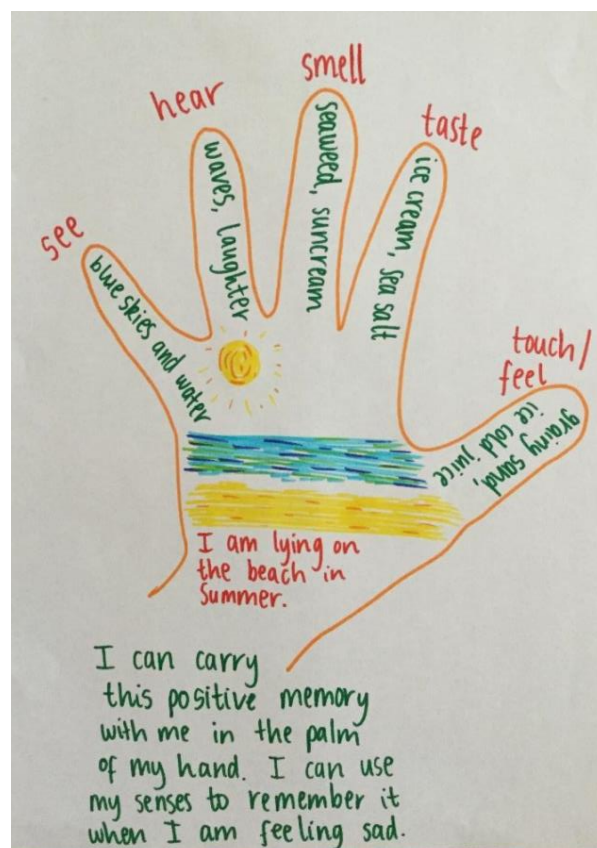 see
blue skies and water
hear
waves, laughter
smell
seaweed, suncream
taste
ice cream, sea salt
touch/
feel
grainy sand,
ice cold juice
I am lying on
the beach in
Summer.
I can carry
this positive memory
with me in the palm
of my hand. I can use
my senses to remember it
when I am feeling sad.